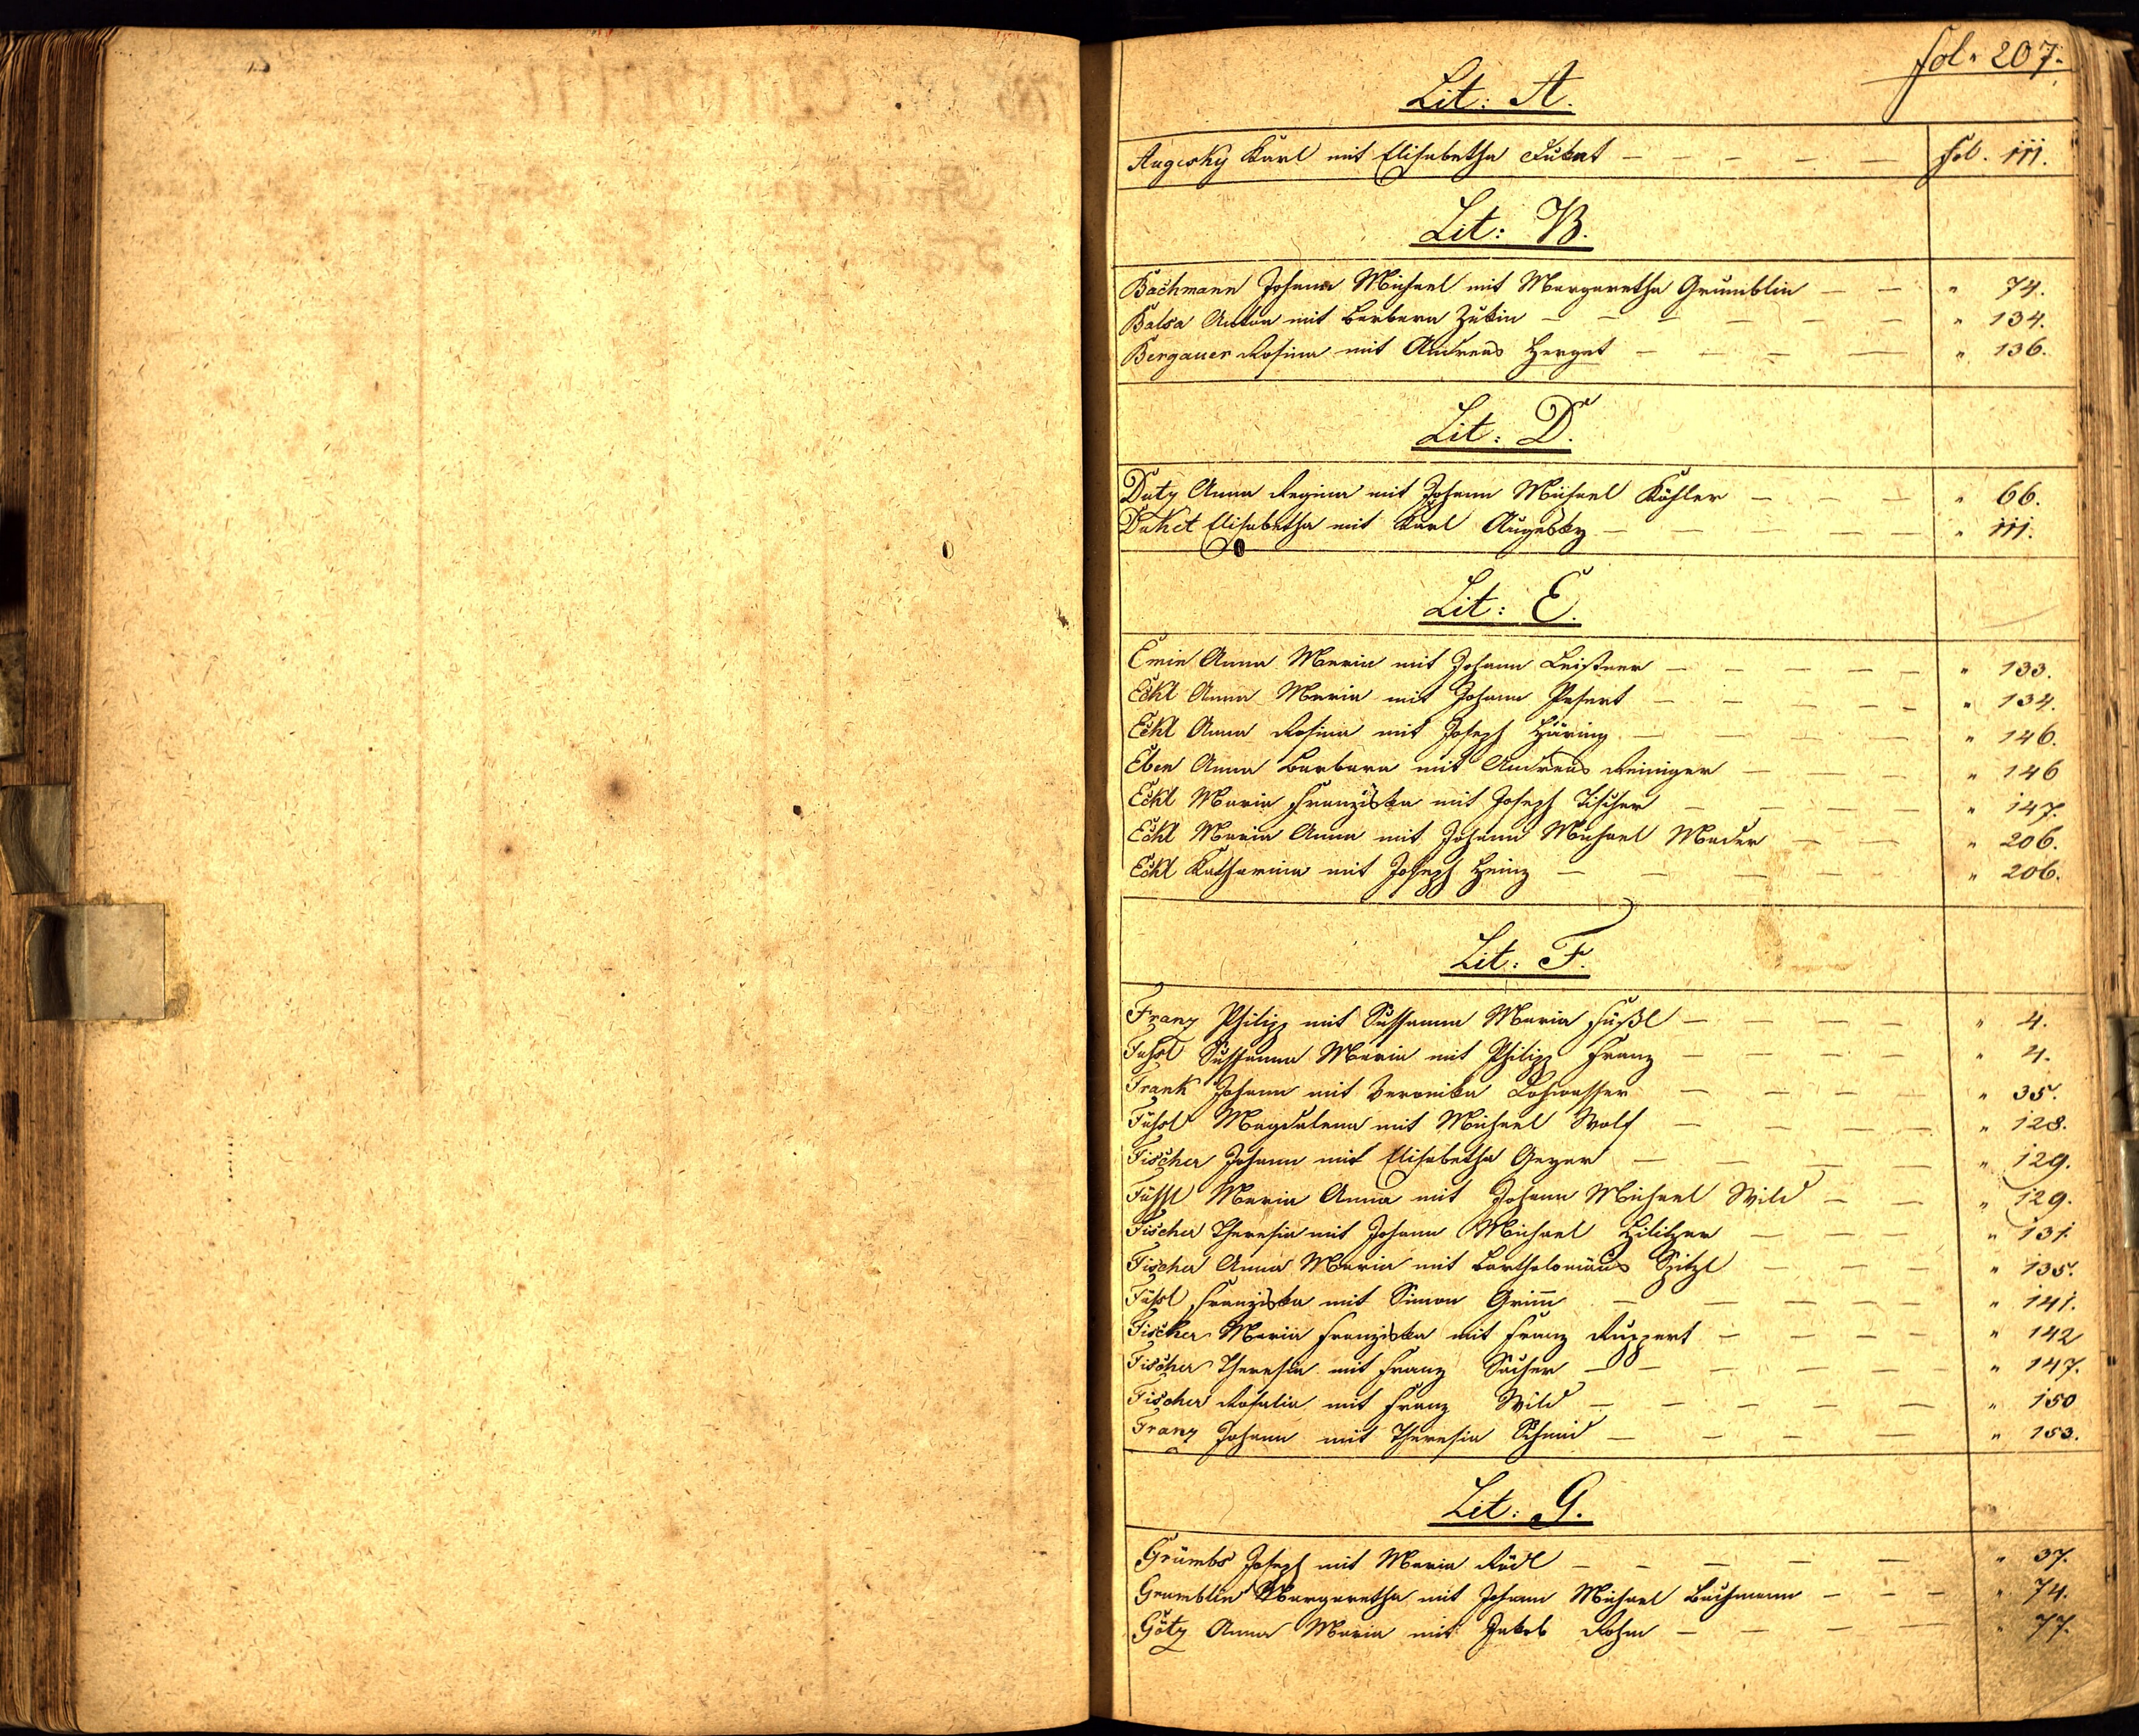 fol. 207.
Lit: A.
Augesky Karl mit Elisabetha Dukat — — — — fol. 111.
Lit: B.
Bachmann Johann Michael mit Margaretha Grumblin — — " 74.
Balsa Anton mit Barbara — — — — — " 134.
Bergauer Rosina mit Andreas Herget — — — — " 136.
Lit: D.
Duty Anna Regina mit Johann Michael Köhler — — — " 66.
Duket Elisabetha mit Karl Augesky — — — — " 111.
Lit: E.
Emin Anna Maria mit Johann Leistner — — — — " 133.
Eckl Anna Maria mit Johann — — — — " 134.
Eckl Anna Rosina mit Joseph Häring — — — — " 146.
Eben Anna Barbara mit Andreas Reiniger — — — " 146
Eckl Maria Franziska mit Joseph Tischer — — — — " 147.
Eckl Maria Anna mit Johann Michael Mader — — " 206.
Eckl Katharina mit Joseph Heinz — — — — — " 206.
Lit: F.
Franz Philipp mit Susanna Maria Füßl — — — — " 4.
Fühsl Susanna Maria mit Philipp Franz — — — — " 4.
Frank Johann mit Veronika Lohwasser — — — — " 35.
Fühsl Magdalena mit Michael Wolf — — — — " 128.
Fischer Johann mit Elisabetha Geyer — — — — " 129.
Fühsl Maria Anna mit Johann Michael Wild — — " 129.
Fischer Theresia mit Johann Michael — — — " 131.
Fischer Anna Maria mit Bartholomäus Spitzl — — — " 135.
Fühsl Franziska mit Simon Grim̅ — — — — — " 141.
Fischer Maria Franziska mit Franz Ruppert — — — — " 142
Fischer Theresia mit Franz Sacher — — — — — " 147.
Fischer Rosalia mit Franz Wild — — — — — " 150
Franz Johann mit Theresia Schmid — — — — " 153.
Lit: G.
Grümbs Joseph mit Maria Rödl — — — — — " 37.
Grumblin Margaretha mit Johann Michael Bachmann — — — " 74.
Götz Anna Maria mit Jakob Rohm — — — — " 77.